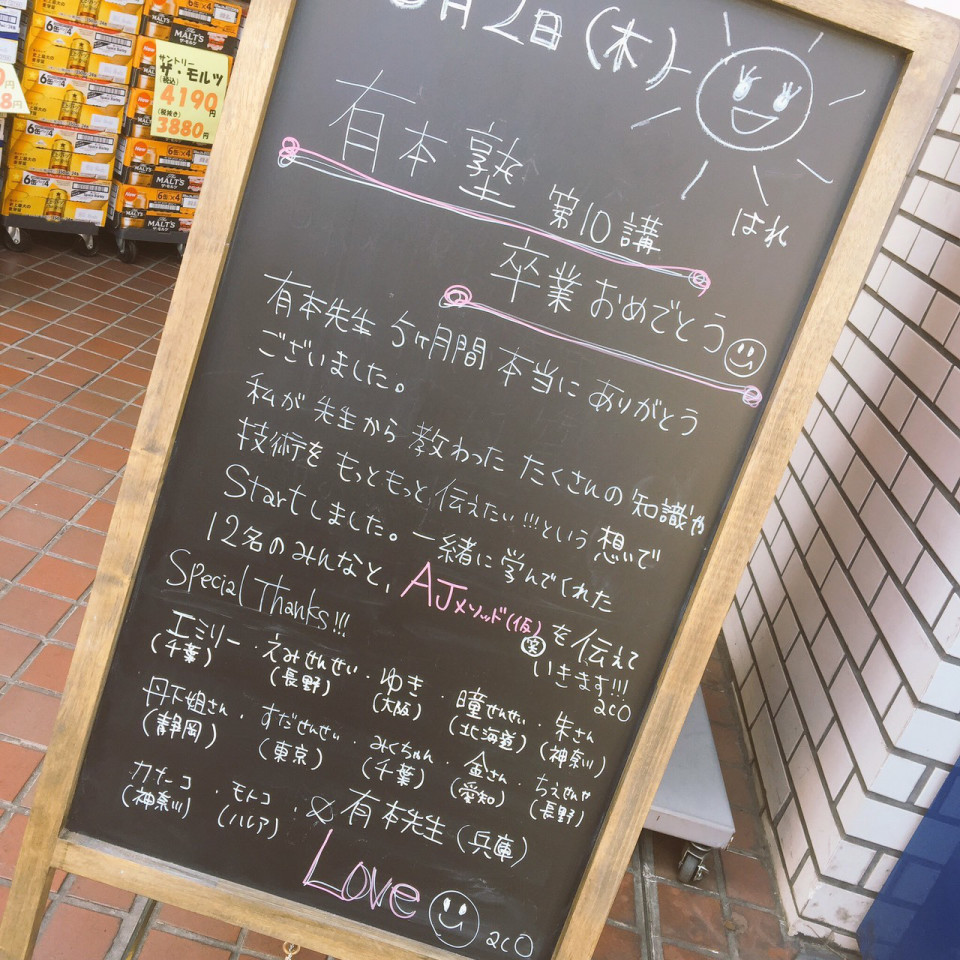 月2日(木)
はれ
有本塾 第10講
卒業おめでとう
有本先生 5ヶ月間 本当に ありがとう
ございました。
私が 先生から 教わった たくさんの 知識や
技術を もっともっと 伝えたい!!!という 想いで
Startしました。一緒に 学んでくれた
12名の みんなと、AJメソッド(仮)を 伝えて
笑
いきます!!!
aco
Special Thanks!!!
エミリー・えみせんせい・ゆき・瞳せんせい・朱さん
(千葉) (長野) (大阪) (北海道) (神奈川)
丹下姐さん・すだせんせい・みくちゃん・金さん・ちえせんせ
(静岡) (東京) (千葉) (愛知) (長野)
カナーコ・モトコ・& 有本先生(兵庫)
(神奈川) (ハレア)
Love
aco
サントリー
ザ・モルツ
(税込)
4190円
(税抜き)
3880円
6缶×4
MALT'S